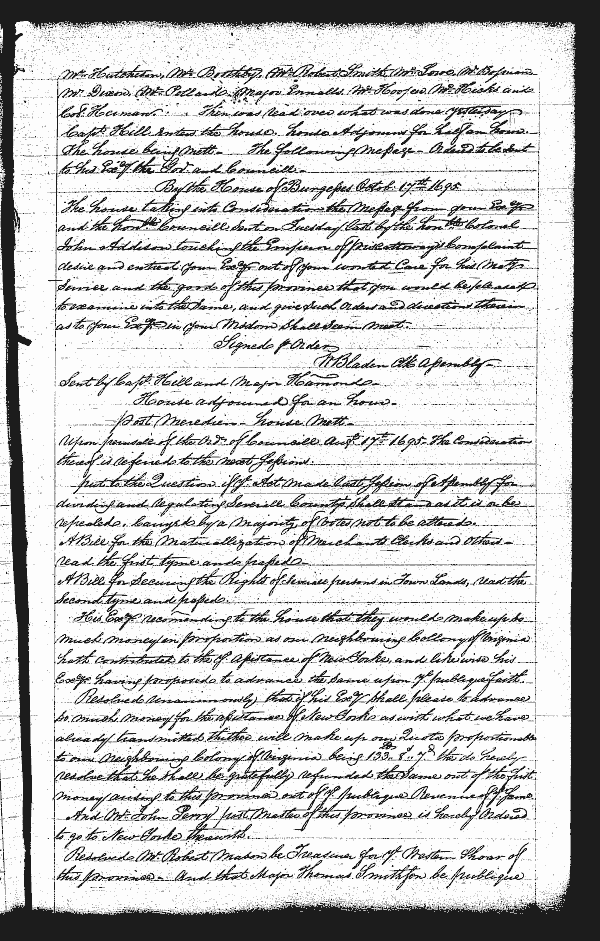 Mr Hutchison, Mr Boothby, Mr Robert Smith, Mr Lowe, Mr
Mr Dixon, Mr Pollard, Major Ennalls, Mr Hooper Mr Hicks and
Col. Herman. Then was read over what was done yesterday
Capt. Hill enters the house. house Adjourns for half an hour.
The house being mett. The following Message Ordered to be sent
to his Excy the Govr and Councill.
By the House of Burgesses Octob. 17th 1695
The house taking into Consideration the Message from your Excy
and the honble Councill sent on Tuesday last by the honble Colonel
John Addison touching the Emperor of Piscattoways Complaint
desire and entreat your Excy out of your wonted Care for his Matys
Service and the good of this province that you would be pleased
to examine into the Same, and give such Orders and directions therein
as to your Excy in your Wisdom Shall seem meet.
Signed p Order
W Bladen Clk Assembly
Sent by Capt. Hill and Major Hamond.
House adjourned for an hour.
post Meredien house Mett.
Upon perusale of the Ord. of Councill Augt. 17th 1695. The Consideration
thereof is referred to the next Sessions.
put to the Question if ye Act made last Session of Assembly for
dividing and regulating Severall Countys shall stand as it is or be
repealed. Carryed by a Majority of Votes not to be altered.
A Bill for the Naturallization of Merchants Clerks and Others
read the first tyme and passed
A Bill for Securing the Rights of Severall persons in Town Lands, read the
Second tyme and passed.
His Excy recomending to the house that they would make up so
much money in proportion as our neighbouring Collony of Virginia
hath contributed to the Assistance of New Yorke, and likewise his
Excy having proposed to advance the Same upon ye publique faith
Resolved Unanimously that if his Excy shall please to advance
so much money for the assistance of New York as with what we have
already transmitted thither will make up our Quota proportionable
to our Neighbouring Colony of Virginia being 133. 8. 7d the do hereby
resolve that he shall be gratefully refunded the Same out of the first
money arising to this province out of ye publique Revenue of ye Same
And Mr John Perry post Master of this province is hereby Ordered
to go to New Yorke therewith.
Resolved Mr Robert Mason be Treasurer for ye Western Shoar of
this province. And that Major Thomas Smithson be publique